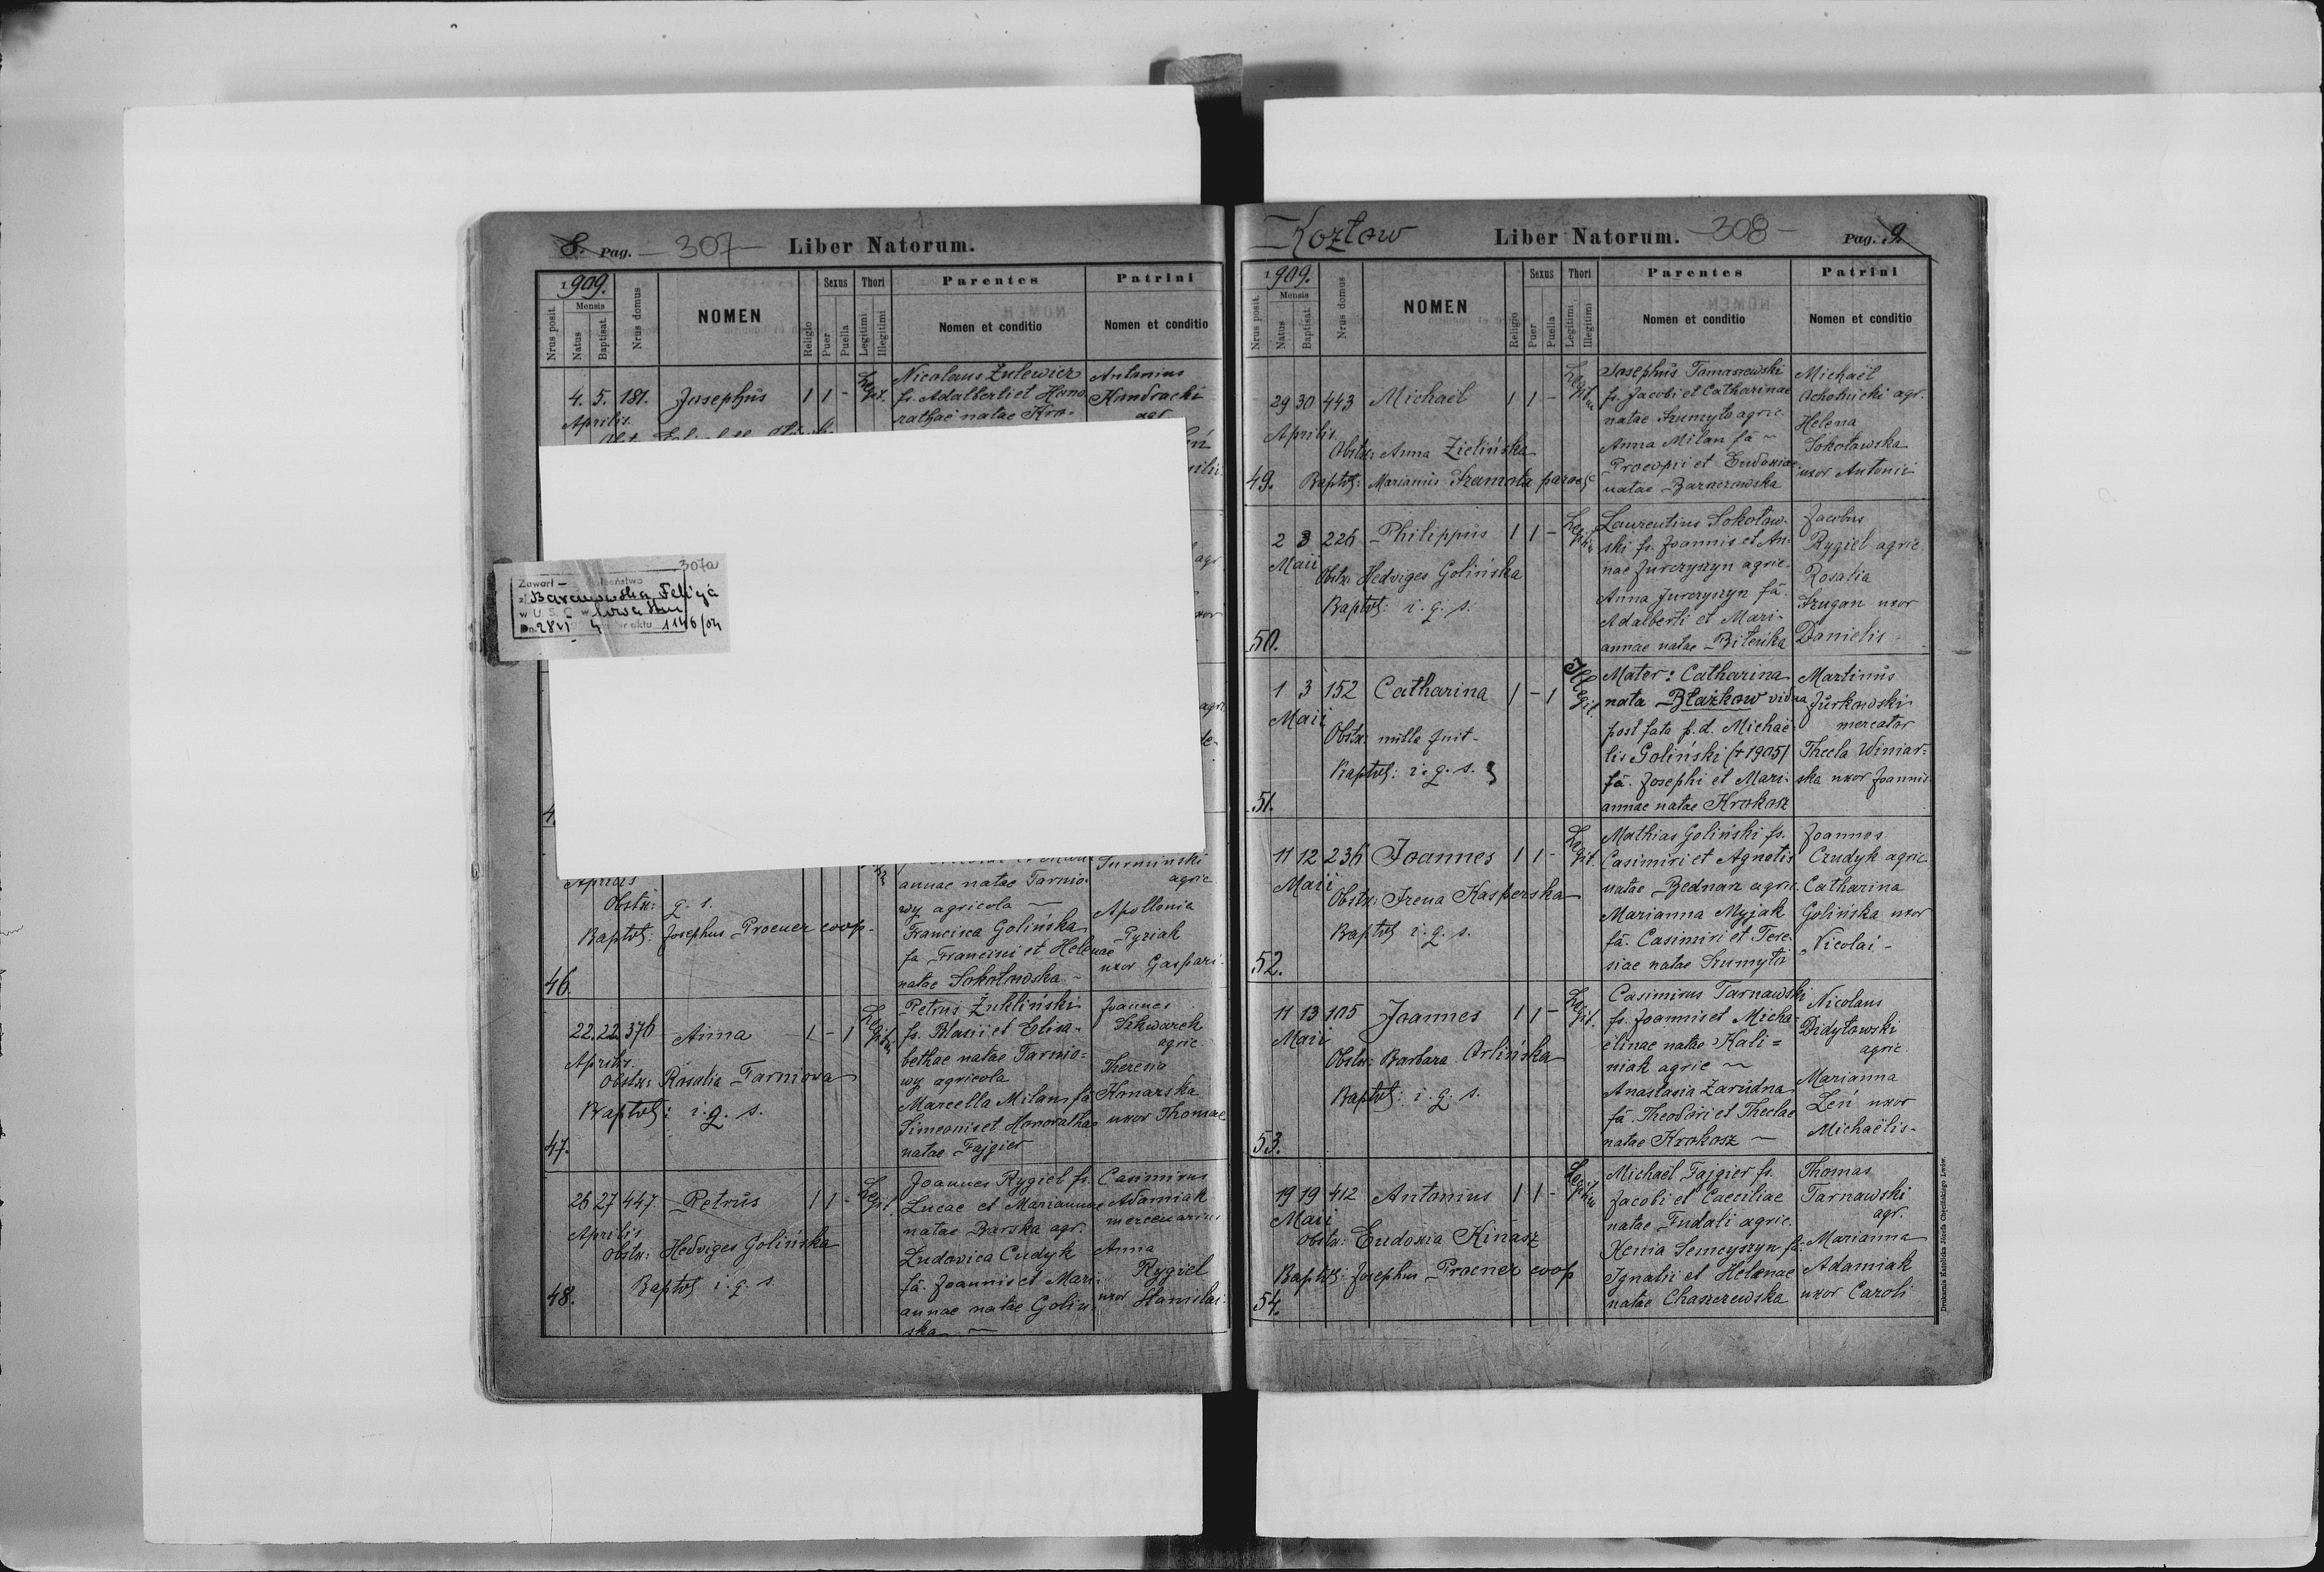 8. Pag. — 307 — Liber Natorum.
1909.
Nrus posit.
Mensis
Natus
Baptisat.
Nrus domus
NOMEN
Religio
Sexus
Puer
Puella
Thori
Legitimi
Illegitimi
Parentes
Nomen et conditio
Patrini
Nomen et conditio
4. 5. 181. Josephus 1 1 -
Aprilis.
Nicolaus Żulewicz
fs. Adalberti et Hono
rathae natae Kro-
Antonius
Kondracki
agr
307a
Zawarł —
z Baranowska Felicja
w U S C w
Dn. 28 VI aktu 1146/04
Aprilis
Obstx: q. s.
Baptvs: Josephus Procner coop.
46.
annae natae Tarnio-
wy agricola —
Francisca Golińska
fa Francisci et Helenae
natae Sokołowska —
Surminski
agric
Apollonia
Pyziak
uxor Gaspari
22. 22. 376 Anna 1 - 1 Legitim
Aprilis.
Obstx: Rosalia Tarniowa
Baptvs: i. q. s.
47.
Petrus Żukliński
fs. Blasii et Elisa-
bethae natae Tarnio=
wy agricola
Marcella Milan fa
Simeonis et Honorathae
natae Fajgier
Joannes
Szkwarek
agric
Theresia
Konarska
uxor Thomae
26 27 447. Petrus 1 1 - Legit.
Aprilis
Obstx: Hedviges Golińska
Baptvs i. q. s.
48.
Joannes Rygiel fs.
Lucae et Mariannae
natae Barska agr.
Ludovica Cudyk
fa. Joannis et Mari-
annae natae Golin-
ska —
Casimirus
Adamiak
mercenarius
Anna
Rygiel
uxor Stanislai
Kozłow Liber Natorum. — 308 — Pag. 9.
1909.
Nrus posit.
Mensis
Natus
Baptisat.
Nrus domus
NOMEN
Religio
Sexus
Puer
Puella
Thori
Legitimi
Illegitimi
Parentes
Nomen et conditio
Patrini
Nomen et conditio
29 30 443 Michaël 1 1 - Legitim
Aprilis
Obstx: Anna Zielińska
49. Baptvs: Marianus Szamota
Josephus Tomaszewski
fs. Jacobi et Catharinae
natae Szumyło agric.
Anna Milan fa —
Procopii et Eudoxiae
natae Barnczowska
Michaël
Ochotnicki agr.
Helena
Sokołowska
uxor Antonii
2 3 226 Philippus 1 1 - Legitim
Maii
Obstx: Hedviges Golińska
Baptvs: i. q. s.
50.
Laurentius Sokołow-
ski fs. Joannis et An-
nae Jurczyszyn agric-
Anna Jurczyszyn fa.
Adalberti et Mari-
annae natae Bileńka
Jacobus
Rygiel agric.
Rosalia
Szugan uxor
Danielis
1 3 152 Catharina 1 - 1 Illegit.
Maii
Obstx: nulla fuit-
Baptvs: i. q. s.
51.
Mater: Catharina
nata Błażkow vidua
post fata p. d. Michaë-
lis Goliński (+ 1905)
fa. Josephi et Mari-
annae natae Krokosz
Martinus
Jurkowski
mercator
Thecla Winiar=
ska uxor Joannis
11 12 236 Joannes 1 1 - Legit.
Maii
Obstx: Irena Kasperska
Baptvs i. q. s.
52.
Mathias Goliński fs.
Casimiri et Agnetis
natae Bednarz agric.
Marianna Myjak
fa. Casimiri et Tere-
siae natae Szumyło
Joannes
Czudyk agric
Catharina
Golińska uxor
Nicolai -
11 13 105 Joannes 1 1 - Legit.
Maii
Obstx: Barbara Orlińska
Baptvs: i. q. s.
53.
Casimirus Tarnawski
fs. Joannis et Micha-
elinae natae Kali=
niak agric —
Anastasia Zarudna
fa. Theodori et Theclae
natae Krokosz —
Nicolaus
Didyłowski
agric
Marianna
Leń uxor
Michaëlis-
19 19 412 Antonius 1 1 - Legitim
Maii
Obstx: Eudoxia Kinasz
Baptvs: Josephus Procner coop
54.
Michaël Fajgier fs.
Jacobi et Caeciliae
natae Fudali agric.
Xenia Semeyszyn fa.
Ignatii et Helenae
natae Chaszczewska
Thomas
Tarnawski
agr.
Marianna
Adamiak
uxor Caroli
Drukarnia Katolicka Józefa Chęcińskiego Lwów.